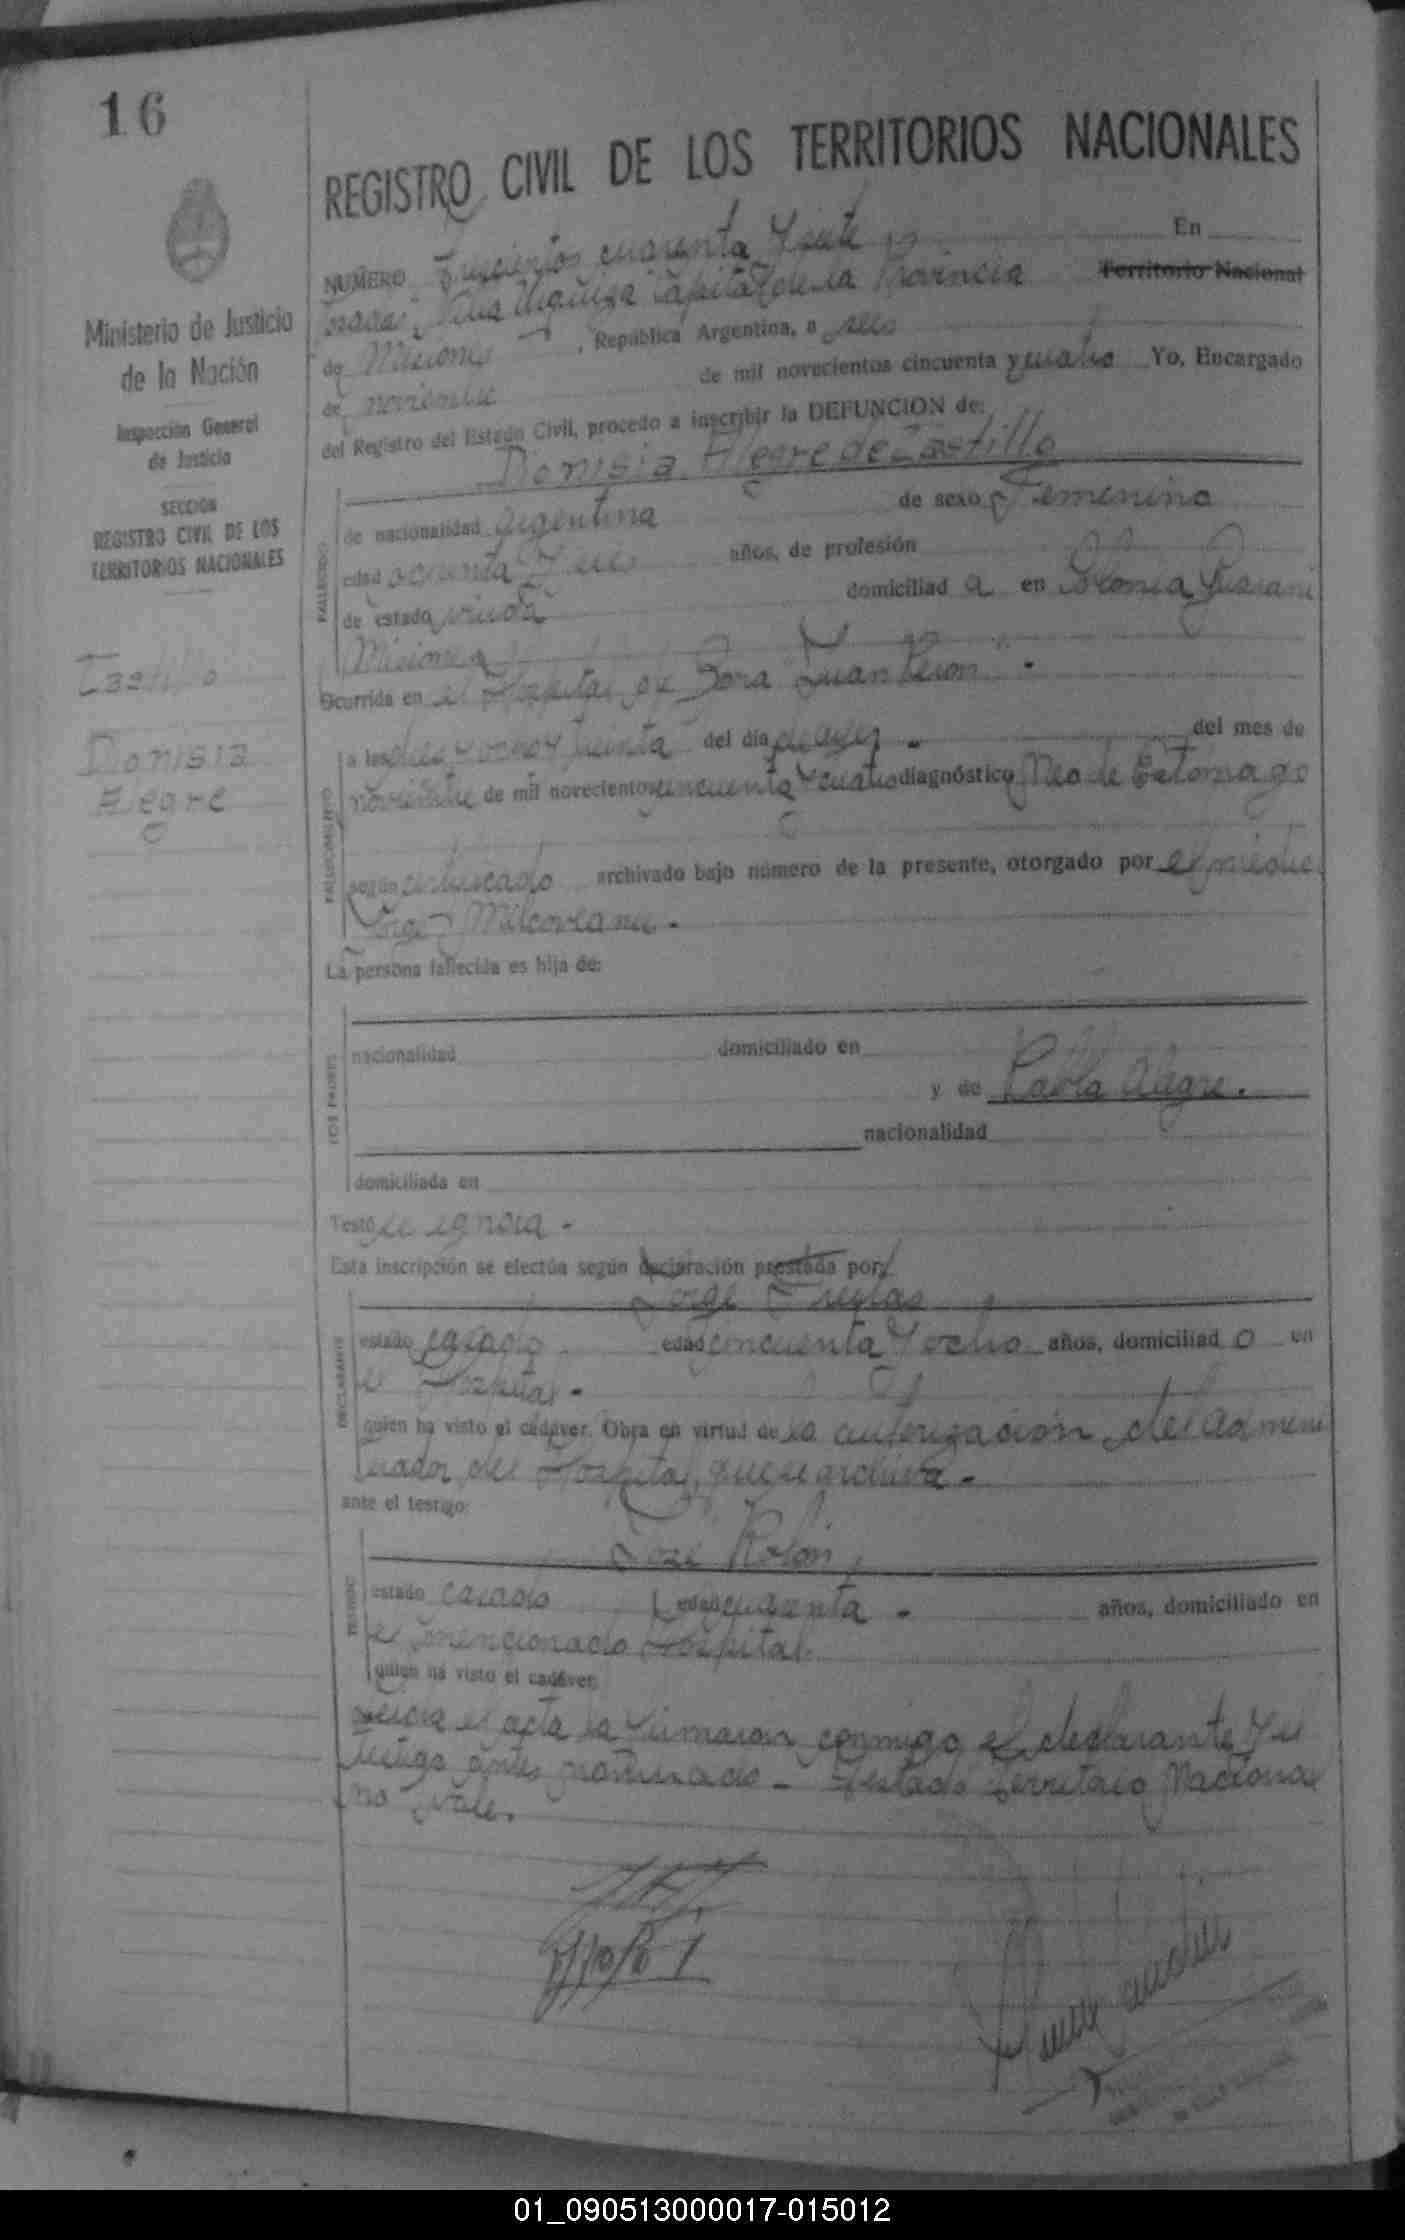 16
REGISTRO CIVIL DE LOS TERRITORIOS NACIONALES
Ministerio de Justicia
de la Nación
Inspección General
de Justicia
SECCION
REGISTRO CIVIL DE LOS
TERRITORIOS NACIONALES
Castillo
Donisia
Alegre
NUMERO cuarenta y siete En
Capital de la Provincia Territorio Nacional
de Misiones , República Argentina, a seis
de noviembre de mil novecientos cincuenta y cuatro Yo, Encargado
del Registro del Estado Civil, procedo a inscribir la DEFUNCION de:
Donisia Alegre de Castillo
FALLECIDO
de nacionalidad argentina de sexo Femenino
edad ochenta y seis años, de profesión
de estado viuda domiciliad a en Colonia Guarani
Misiones
Ocurrida en el Hospital de Zona "Juan Peron".
FALLECIMIENTO
a las diez y ocho y treinta del día de ayer del mes de
noviembre de mil novecientos cincuenta y cuatro diagnóstico Neo de Estomago
según certificado archivado bajo número de la presente, otorgado por el médico
Jorge Milcoveanu.
La persona fallecida es hija de:
LOS PADRES
nacionalidad domiciliado en
y de Pabla Alegre.
nacionalidad
domiciliada en
Testó se ignora.
Esta inscripción se efectúa según declaración prestada por:
Jorge
DECLARANTE
estado casado edad cincuenta y ocho años, domiciliad o en
el Hospital.
quien ha visto el cadáver. Obra en virtud de la autorización del admini
trador del Hospital, que se archiva.
ante el testigo:
José Rolón,
TESTIGO
estado casado edad cuarenta. años, domiciliado en
el mencionado Hospital.
quien ha visto el cadáver.
el acta la firmaran conmigo el declarante y el
testigo antes nombrado - Testado: Territorio Nacional
no vale.
01_090513000017-015012